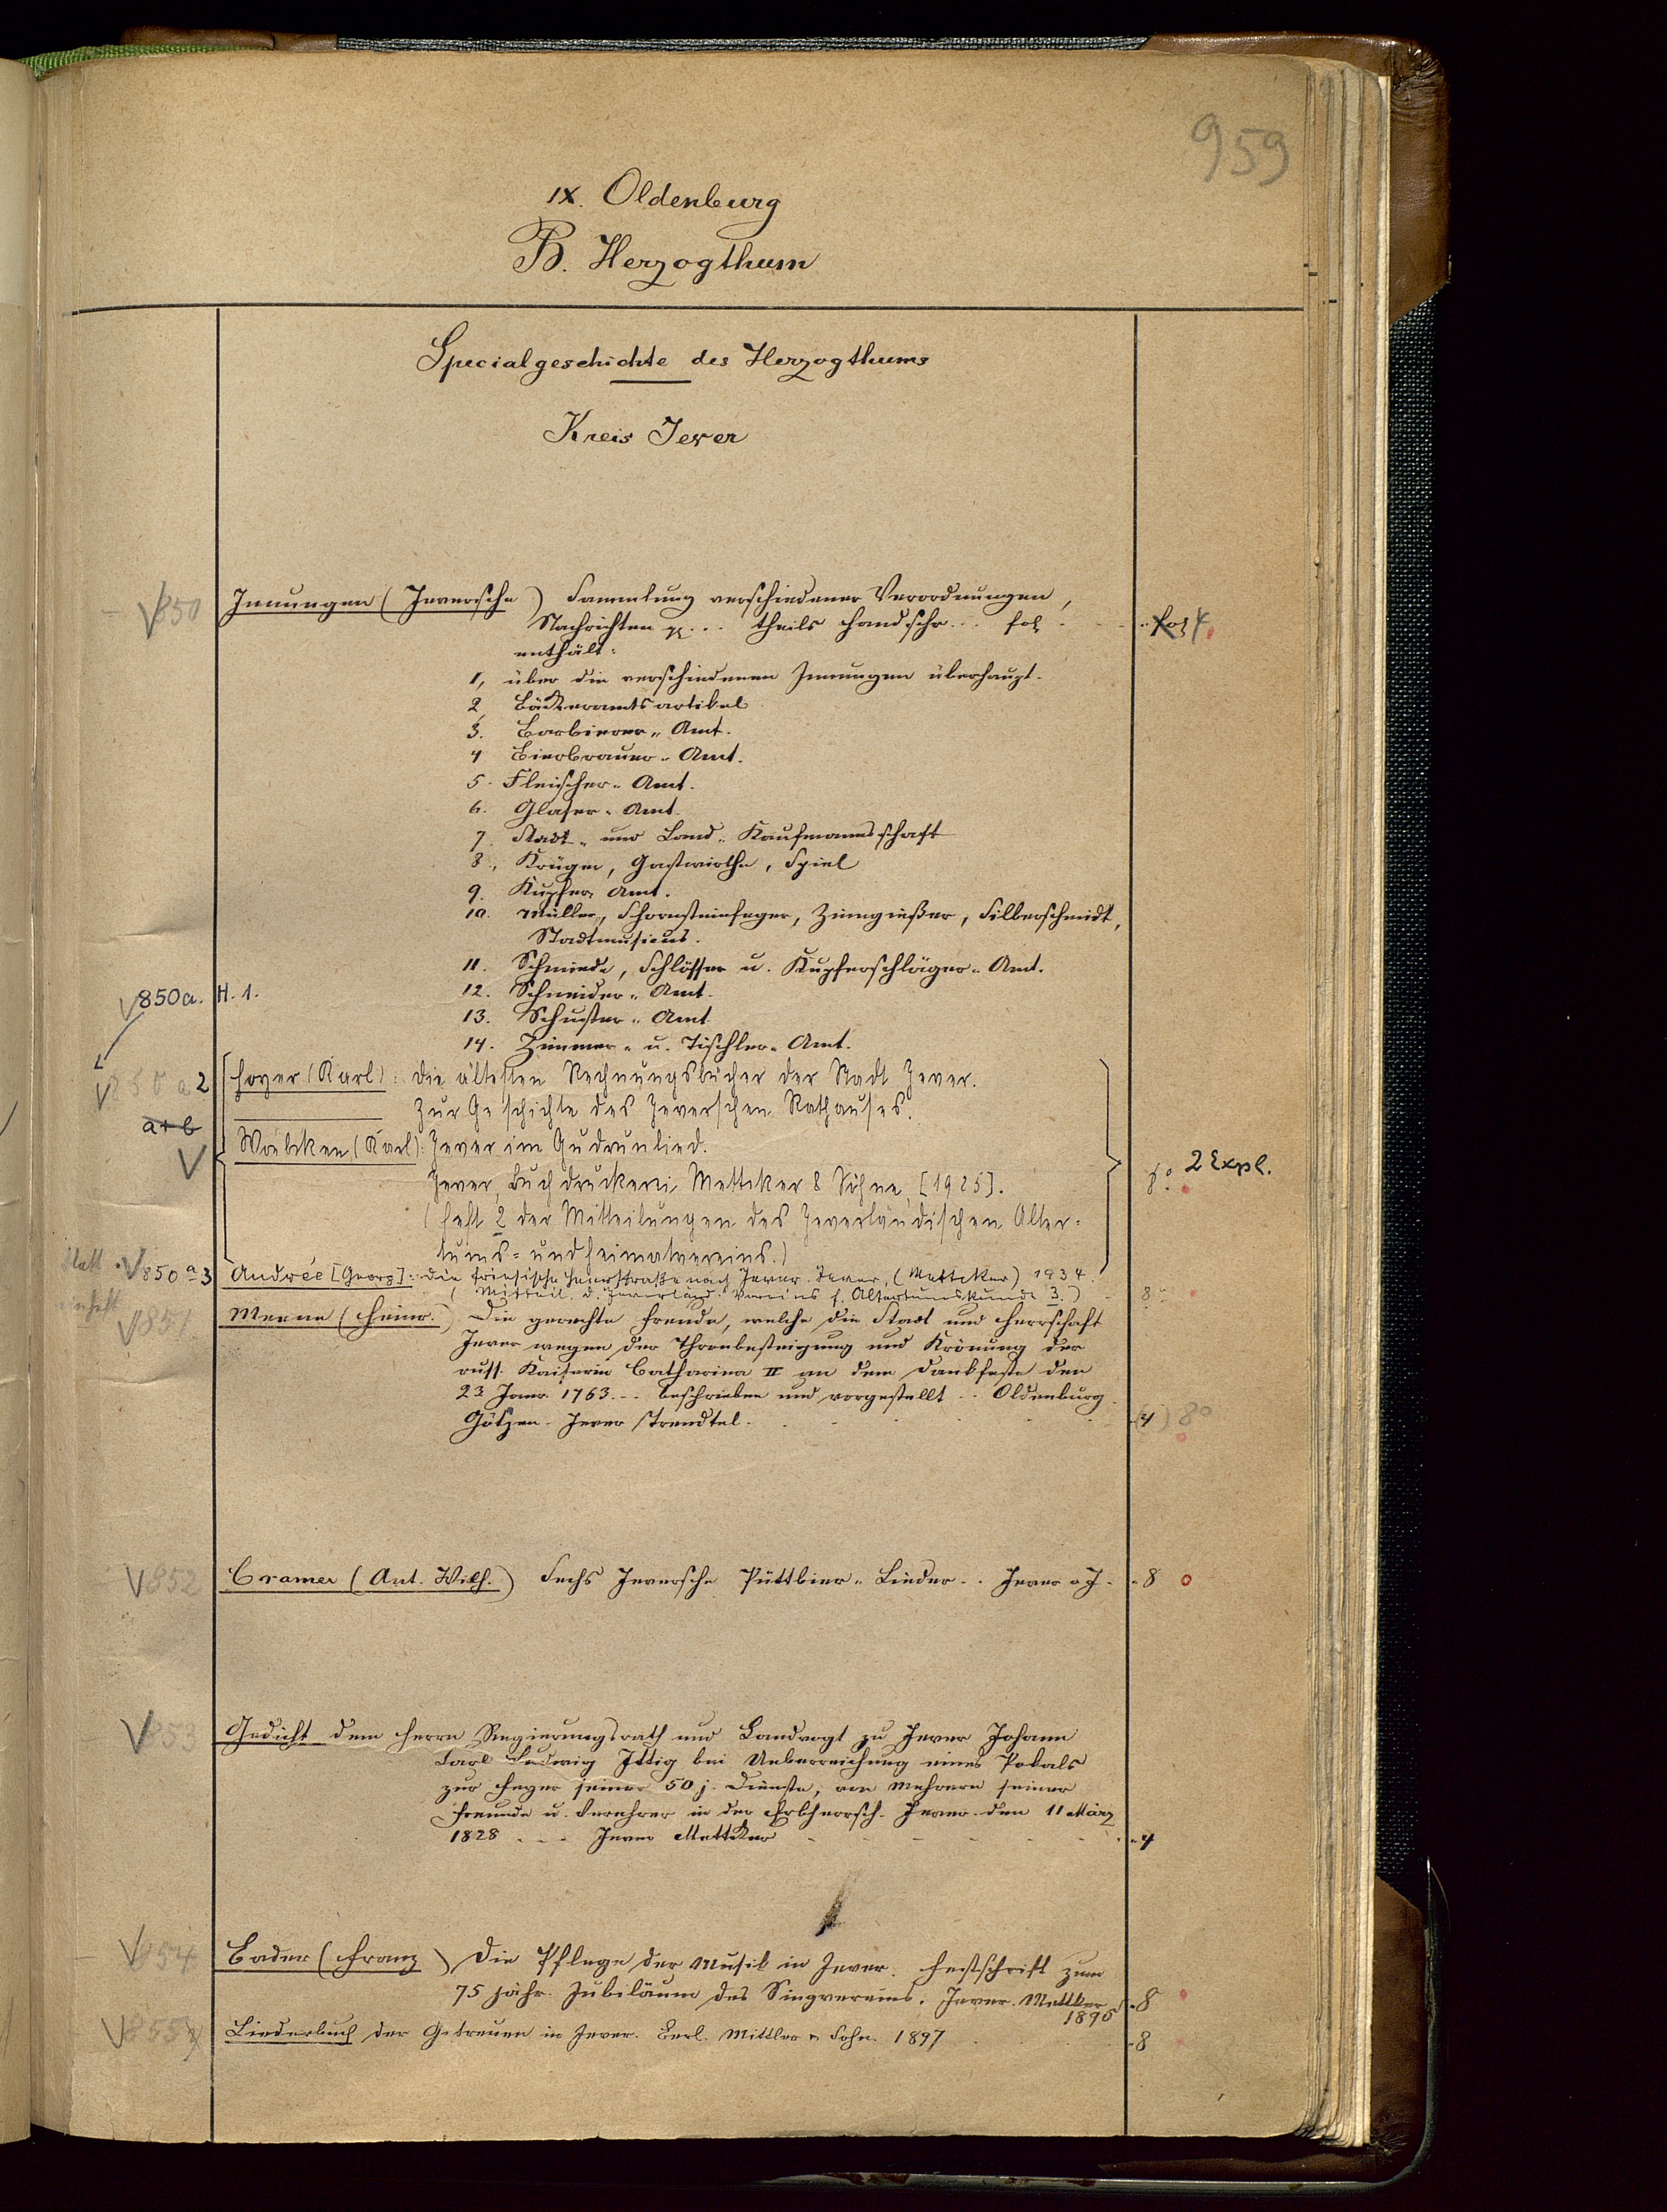 959
IX. Oldenburg
B. Herzogthum
Specialgeschichte des Herzogthums
Kreis Jever
850 Innungen (Jeversche) Sammlung verschiedener Verordnungen,
Nachrichten pp... theils handschr... fol fol 4
enthält:
1, über die verschiedenen Innungen überhaupt.
2, Bäckeramtsartikel
3. Barbierer-Amt.
4 Bierbrauer-Amt.
5. Fleischer-Amt.
6. Glaser-Amt.
7. Stadt- und Land-Kaufmannsschaft
8., Krüger, Gastwirthe, Spiel
9. Kupfer Amt.
10. Müller, Schornsteinfeger, Zinngießer, Silberschmidt,
Stadtmusicus.
11. Schmiede, Schlösser u. Kupferschläger-Amt.
850a. H. 1. 12. Schneider-Amt.
13. Schuster-Amt.
14. Zimmer- u. Tischler-Amt.
850 a 2 Hoyer (Karl): Die ältesten Rechnungsbücher der Stadt Jever.
Zur Geschichte des Jeverschen Rathauses.
a+b
Woebcken (Karl): Jever im Gudrunlied.
Jever, Buchdruckerei Mettcker & Söhne, [1925]. 8° 2 Expl.
(Heft 2 der Mitteilungen des Jeverländischen Alter-
tums- und Heimatvereins.)
850 a 3 Andrée [Georg]: Die friesische Heerstraße nach Jever. Jever, (Mettcker) 1934.
(Mitteil. d. Jeverländ. Vereins f. Altertumskunde 3.) 8°
851 Meene (Heinr.) Die gerechte Freude, welche die Stadt und Herrschaft
Jever wegen der Thronbesteigung und Krönung der
russ. Kaiserin Catharina II an dem Dankfeste den
23 Janr. 1763... beschrieben und vorgestellt.. Oldenburg
Götzen. Jever Trendtel. (4) 8°
852 Cramer (Ant. Wilh.) Sechs Jeversche Püttbier-Lieder.. Jever o J. 8
853 Gedicht dem Herrn Regierungsrath und Landvogt zu Jever Johann
Carl Ludwig Ittig bei Ueberreichung eines Pokals
zur Feyer seiner 50 j. Dienste, von Mehrern seiner
Freunde u. Verehrer in der Erbherrsch. Jever. den 11 März
1828 ... Jever Mettcker 4
854 Bader (Franz) Die Pflege der Musik in Jever. Festschrift zum
75 jähr. Jubiläum des Singvereins. Jever. Mettcker 8
1895
855 Liederbuch der Getreuen in Jever. Berl. Mittler & Sohn. 1897 8